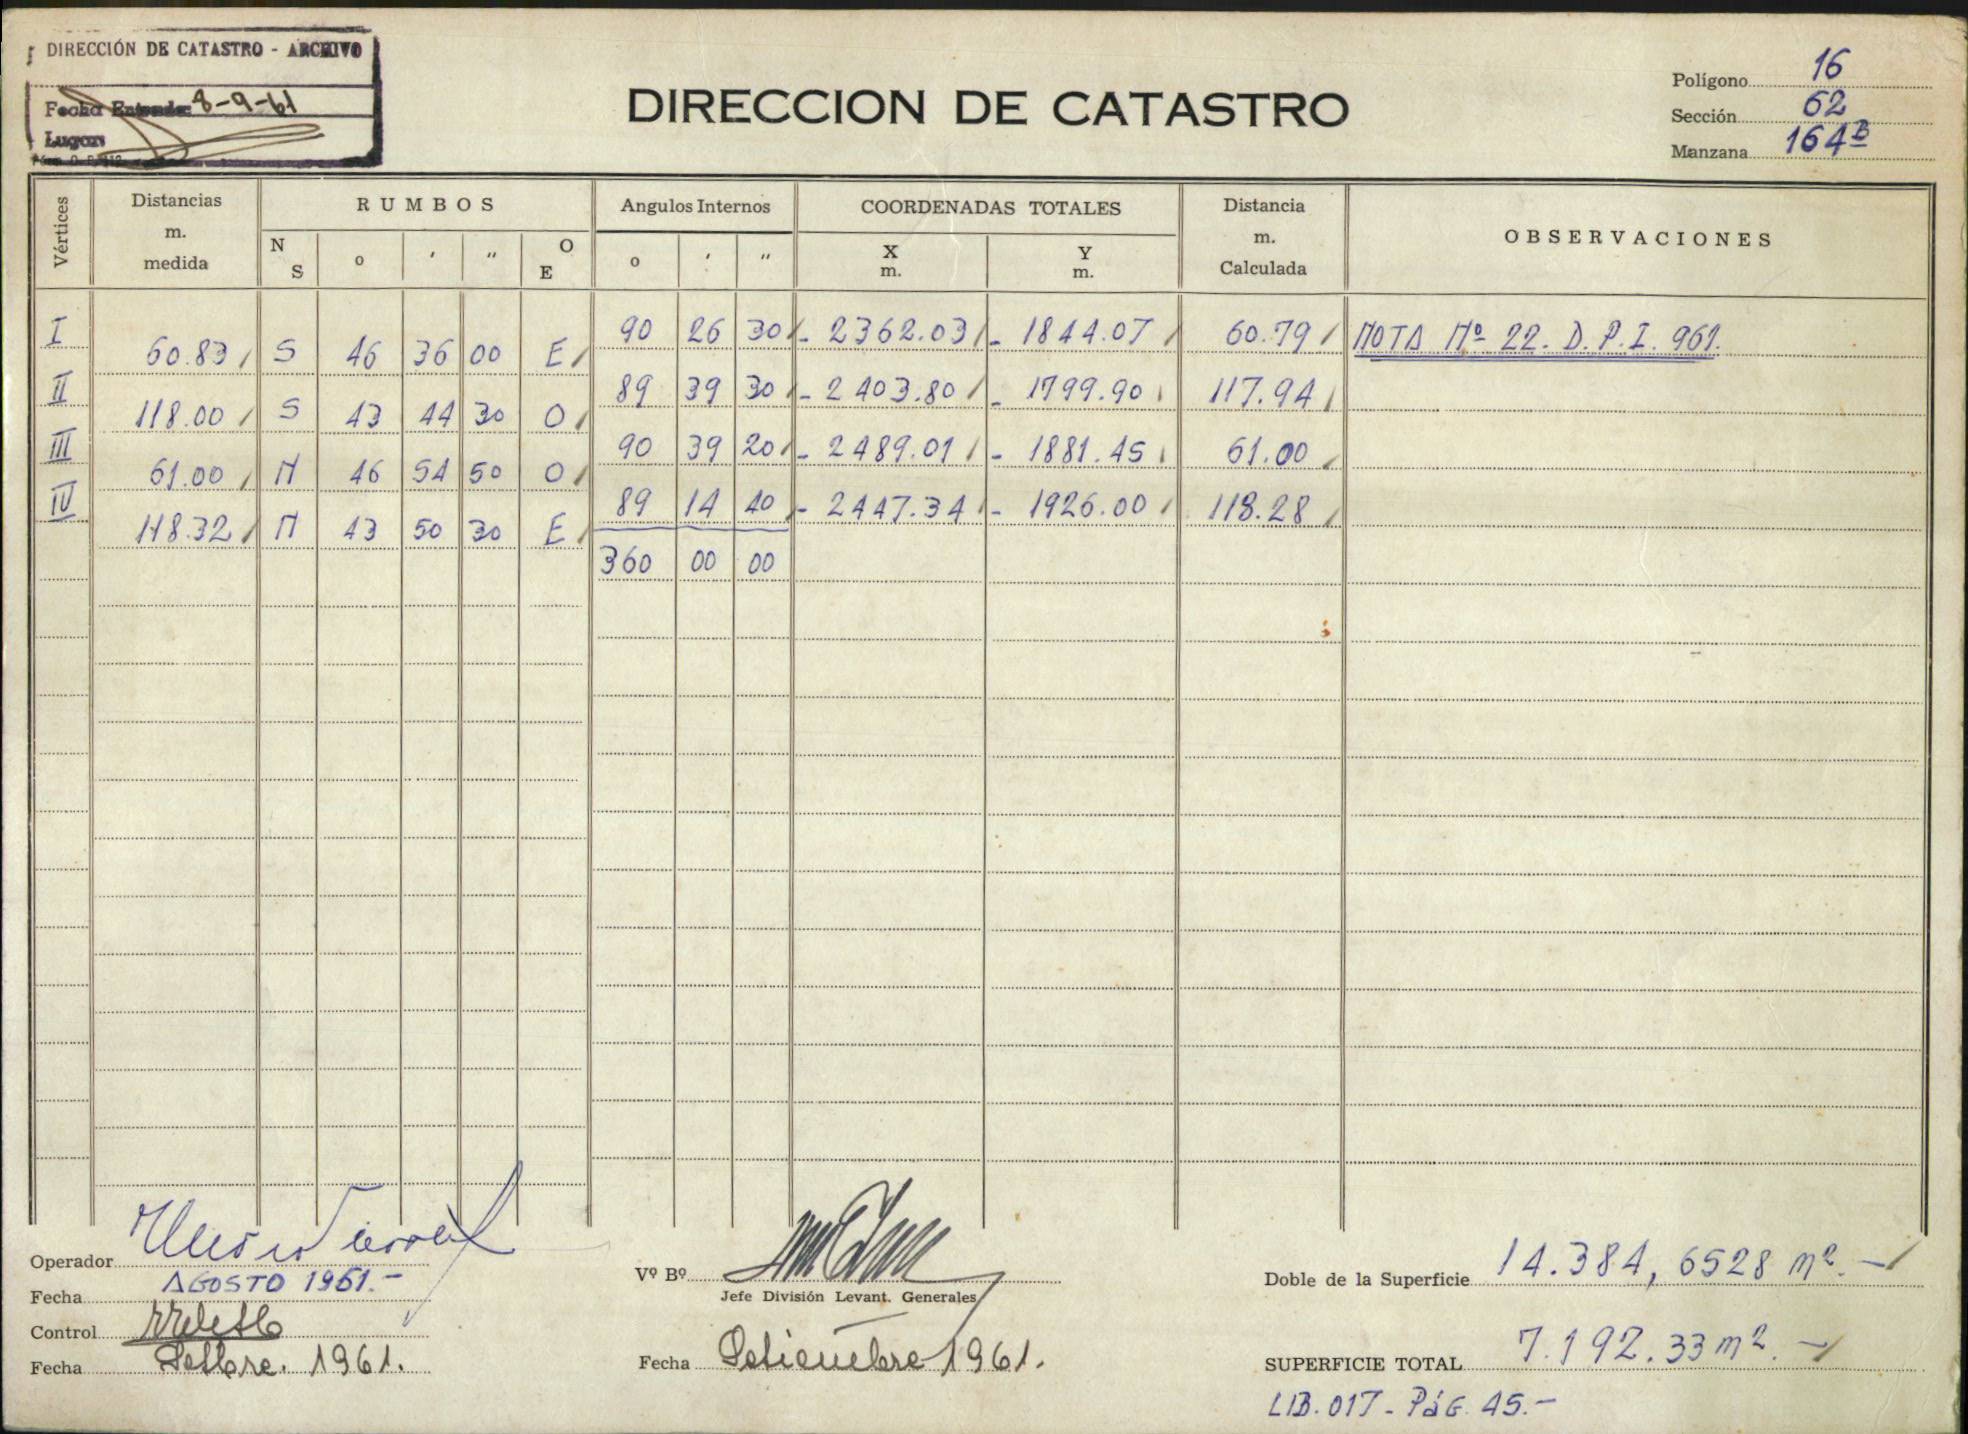 DIRECCIÓN DE CATASTRO - ARCHIVO
Fecha Entrada: 8-9-61
Lugar:
DIRECCION DE CATASTRO
Polígono 16
Sección 62
Manzana 164B
Vértices Distancias m. medida RUMBOS Angulos Internos COORDENADAS TOTALES Distancia m. Calculada OBSERVACIONES
N S o ' " O E o ' " X m. Y m.
I 90 26 30 - 2362.03 - 1844.07 60.79 NOTA Nº 22. D. P. I. 961.
60.83 S 46 36 00 E
II 89 39 30 - 2403.80 - 1799.90 117.94
118.00 S 43 44 30 O
III 90 39 20 - 2489.01 - 1881.45 61.00
61.00 N 46 54 50 O
IV 89 14 40 - 2447.34 - 1926.00 118.28
118.32 N 43 50 30 E
360 00 00
Operador
Fecha AGOSTO 1961.-
Control
Fecha Setbre. 1961.
Vº Bº
Jefe División Levant. Generales
Fecha Setiembre 1961.
Doble de la Superficie 14.384,6528 m². -
SUPERFICIE TOTAL 7.192.33 m². -
LIB. 017 - Pág. 45.-